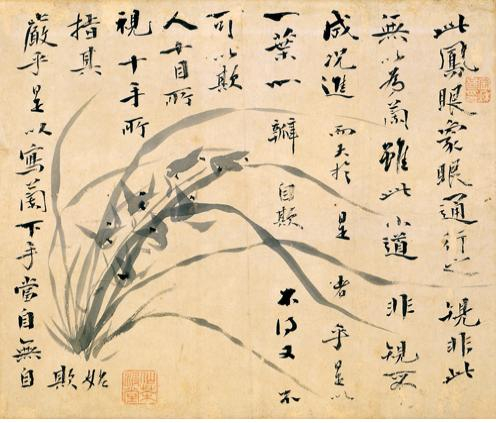 此鳳眼象眼通行之規非此
無以為蘭雖此小道非規不
成況進而大於是者乎是以
一葉一瓣自欺不得又不
可以欺
人十目所
視十手所
指其
嚴乎是以寫蘭下手當自無自
欺始